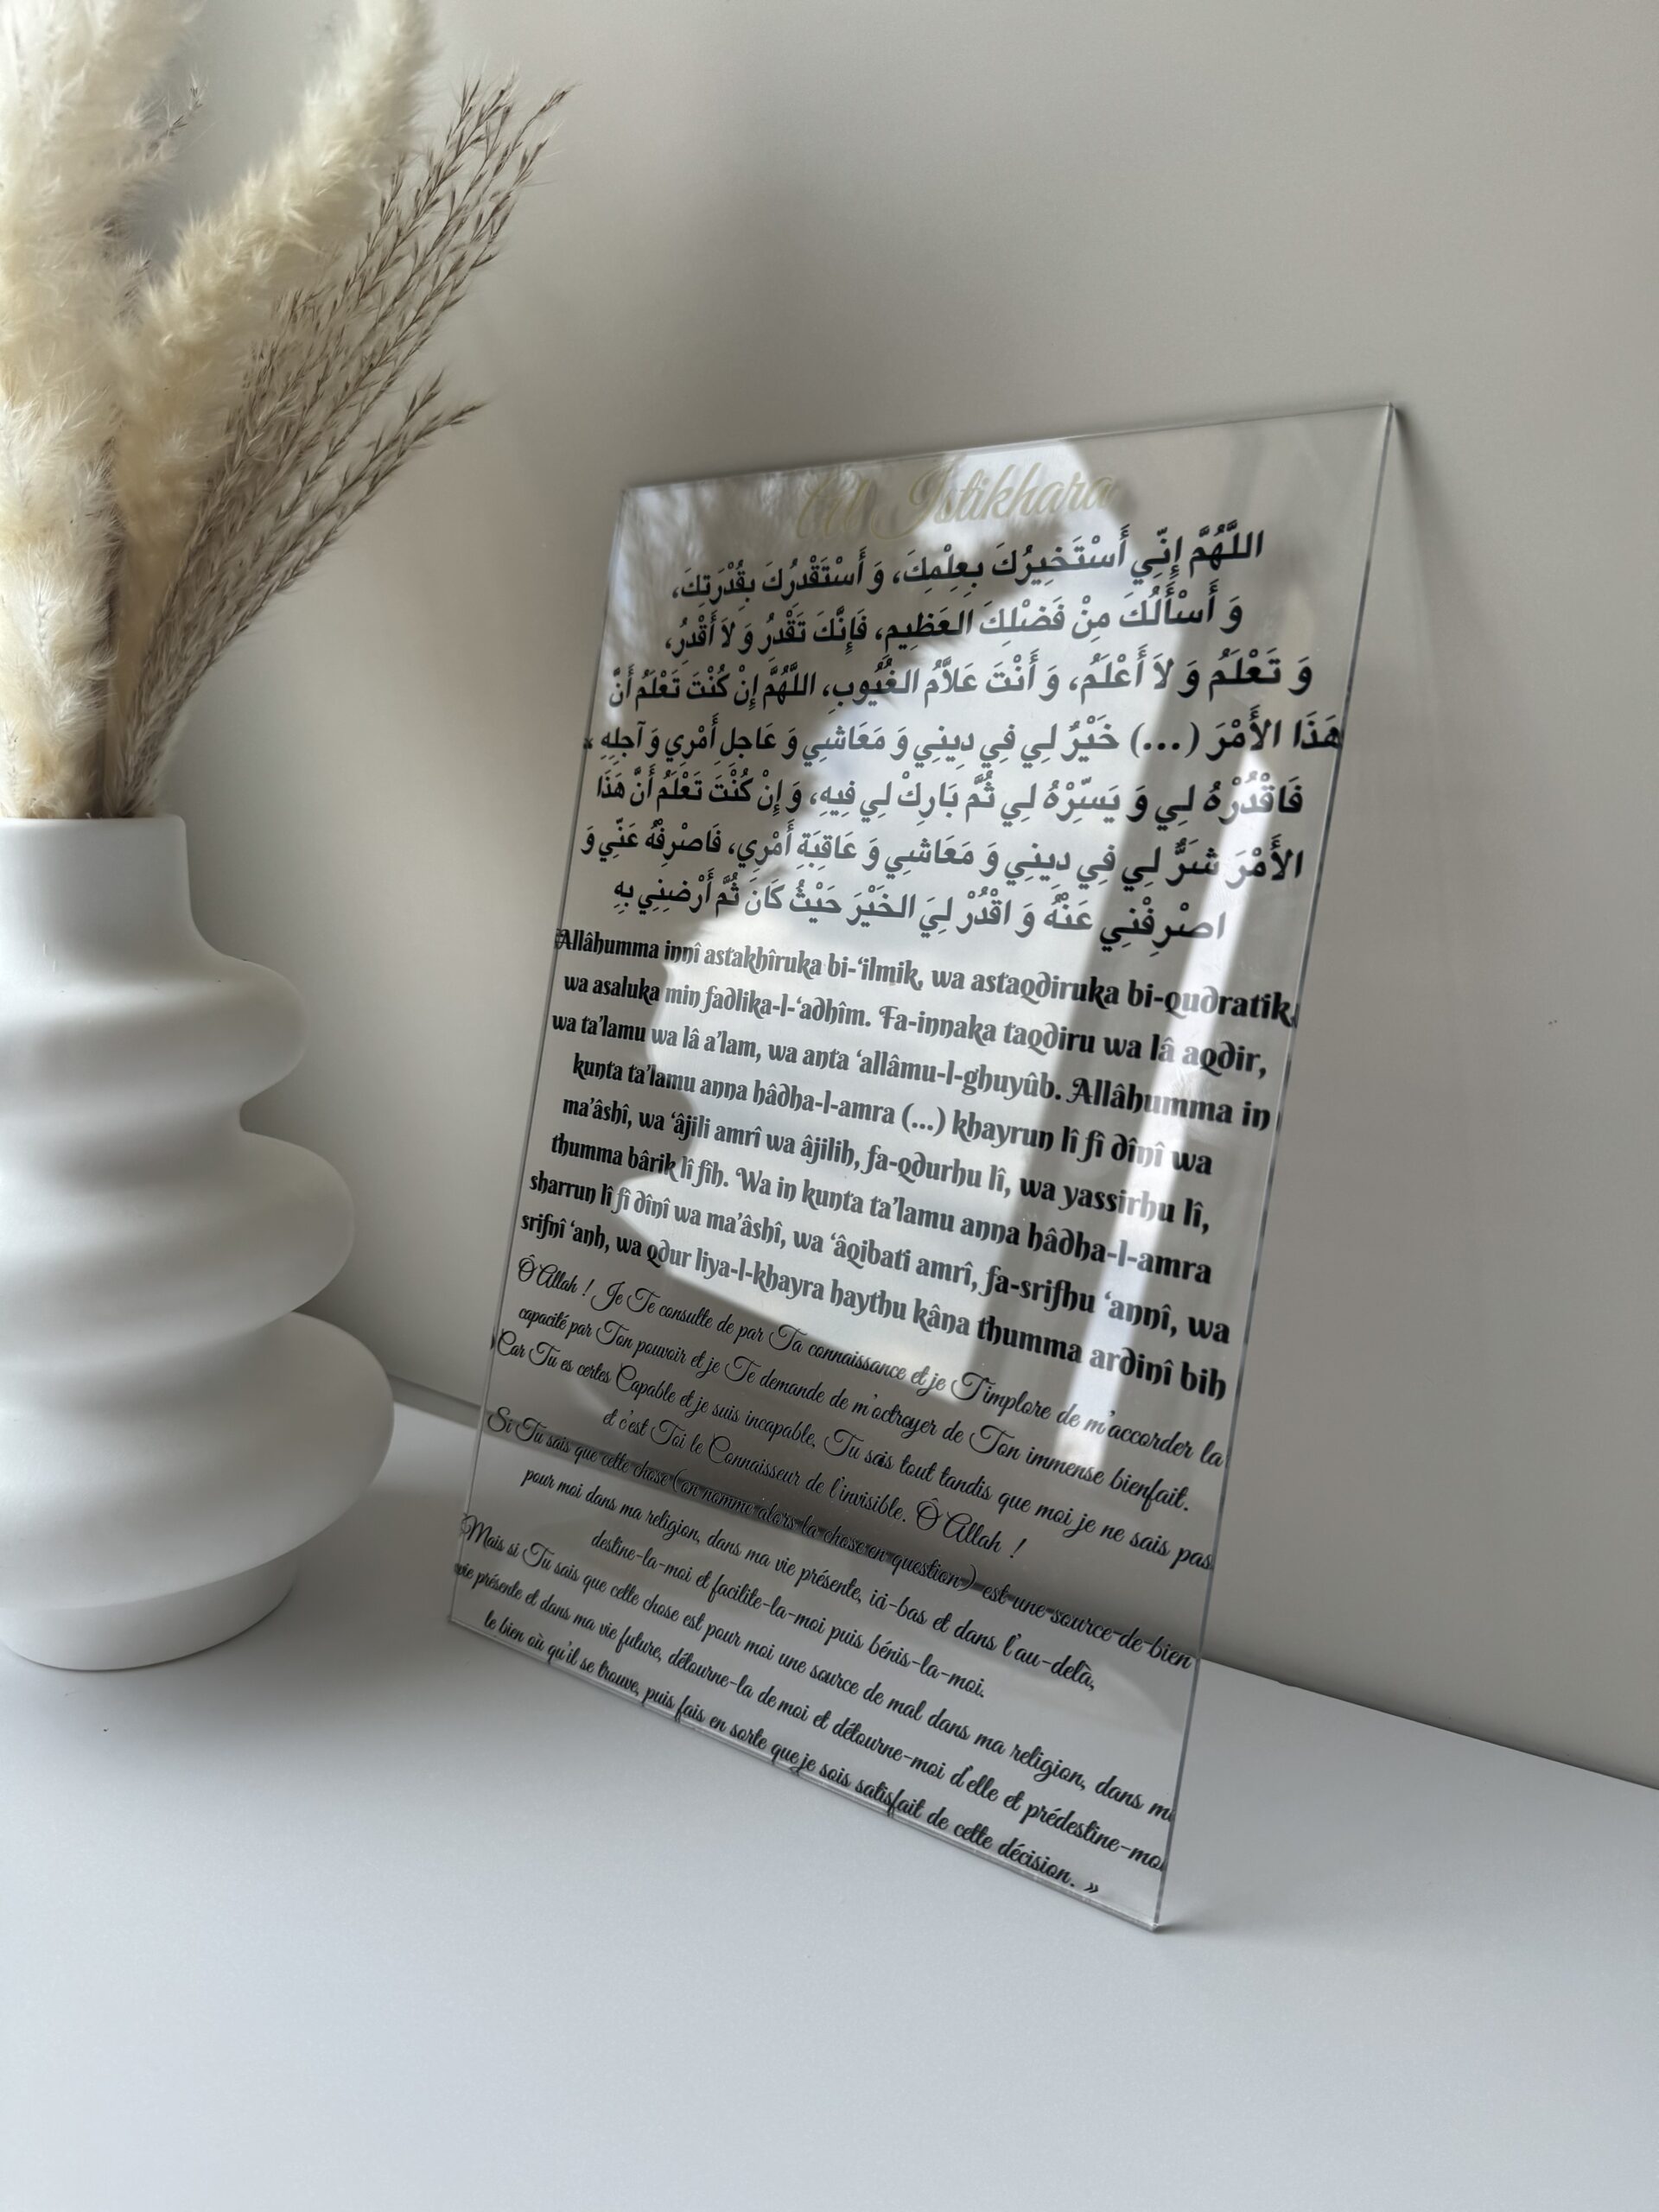 Al Istikhara
اللَّهُمَّ إِنِّي أَسْتَخِيرُكَ بِعِلْمِكَ، وَ أَسْتَقْدِرُكَ بِقُدْرَتِكَ،
وَ أَسْأَلُكَ مِنْ فَضْلِكَ العَظِيمِ، فَإِنَّكَ تَقْدِرُ وَ لاَ أَقْدِرُ،
وَ تَعْلَمُ وَ لاَ أَعْلَمُ، وَ أَنْتَ عَلاَّمُ الغُيُوبِ، اللَّهُمَّ إِنْ كُنْتَ تَعْلَمُ أَنَّ
هَذَا الأَمْرَ (...) خَيْرٌ لِي فِي دِينِي وَ مَعَاشِي وَ عَاجِلِ أَمْرِي وَ آجِلِهِ
فَاقْدُرْهُ لِي وَ يَسِّرْهُ لِي ثُمَّ بَارِكْ لِي فِيهِ، وَ إِنْ كُنْتَ تَعْلَمُ أَنَّ هَذَا
الأَمْرَ شَرٌّ لِي فِي دِينِي وَ مَعَاشِي وَ عَاقِبَةِ أَمْرِي، فَاصْرِفْهُ عَنِّي وَ
اصْرِفْنِي عَنْهُ وَ اقْدُرْ لِيَ الخَيْرَ حَيْثُ كَانَ ثُمَّ أَرْضِنِي بِهِ
Allâhumma innî astakhîruka bi-‘ilmik, wa astaqdiruka bi-qudratik,
wa asaluka min fadlika-l-‘adhîm. Fa-innaka taqdiru wa lâ aqdir,
wa ta’lamu wa lâ a’lam, wa anta ‘allâmu-l-ghuyûb. Allâhumma in
kunta ta’lamu anna hâdha-l-amra (...) khayrun lî fî dînî wa
ma’âshî, wa ‘âjili amrî wa âjilih, fa-qdurhu lî, wa yassirhu lî,
thumma bârik lî fîh. Wa in kunta ta’lamu anna hâdha-l-amra
sharrun lî fî dînî wa ma’âshî, wa ‘âqibati amrî, fa-srifhu ‘annî, wa
srifnî ‘anh, wa qdur liya-l-khayra haythu kâna thumma ardinî bih
Ô Allah ! Je Te consulte de par Ta connaissance et je T'implore de m'accorder la
capacité par Ton pouvoir et je Te demande de m'octroyer de Ton immense bienfait.
Car Tu es certes Capable et je suis incapable, Tu sais tout tandis que moi je ne sais pas
et c'est Toi le Connaisseur de l'invisible. Ô Allah !
Si Tu sais que cette chose (on nomme alors la chose en question) est une source de bien
pour moi dans ma religion, dans ma vie présente, ici-bas et dans l'au-delà,
destine-la-moi et facilite-la-moi puis bénis-la-moi.
Mais si Tu sais que cette chose est pour moi une source de mal dans ma religion, dans ma
vie présente et dans ma vie future, détourne-la de moi et détourne-moi d'elle et prédestine-moi
le bien où qu'il se trouve, puis fais en sorte que je sois satisfait de cette décision. »